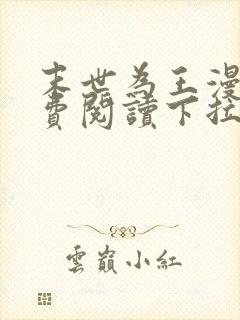 末世為王漫
費閱讀下拉
雲巔小紅